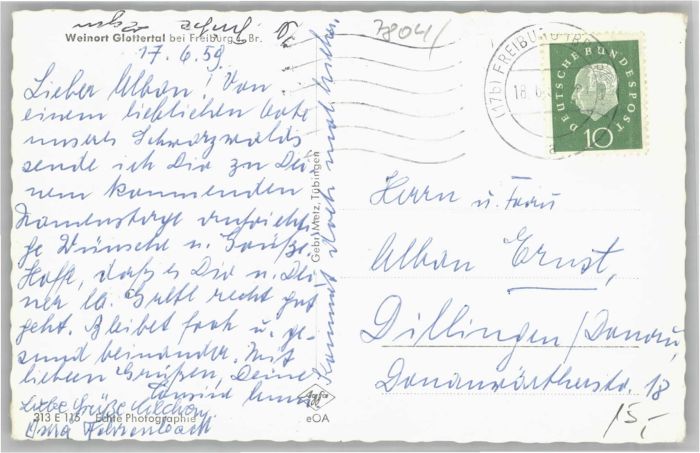 Weinort Glottertal bei Freiburg i. Br.
17.6.59
Lieber Alban! Von
einem lieblichen Orte
unseres Schwarzwalds
sende ich Dir zu Dei
nem kommenden
Namenstage aufricht
ige Wünsche u. Grüße.
Hoffe, daß es Dir u. Dei
ner lb. Gretl recht gut
geht. Bleibet froh u. ge-
sund beinander. Mit
lieben Grüßen, Deine
Liebe Grüße
Fehrenbach
313 E 115 Echte Photographie
Kommt doch mal
Gebr. Metz, Tübingen
Agfa
eOA
7804/
(17b) FREIBURG (BR
18.6.
a
DEUTSCHE BUNDESPOST
10
Herrn u. Frau
Alban Ernst,
Dillingen/Donau,
Donauwörtherstr. 18
15,-